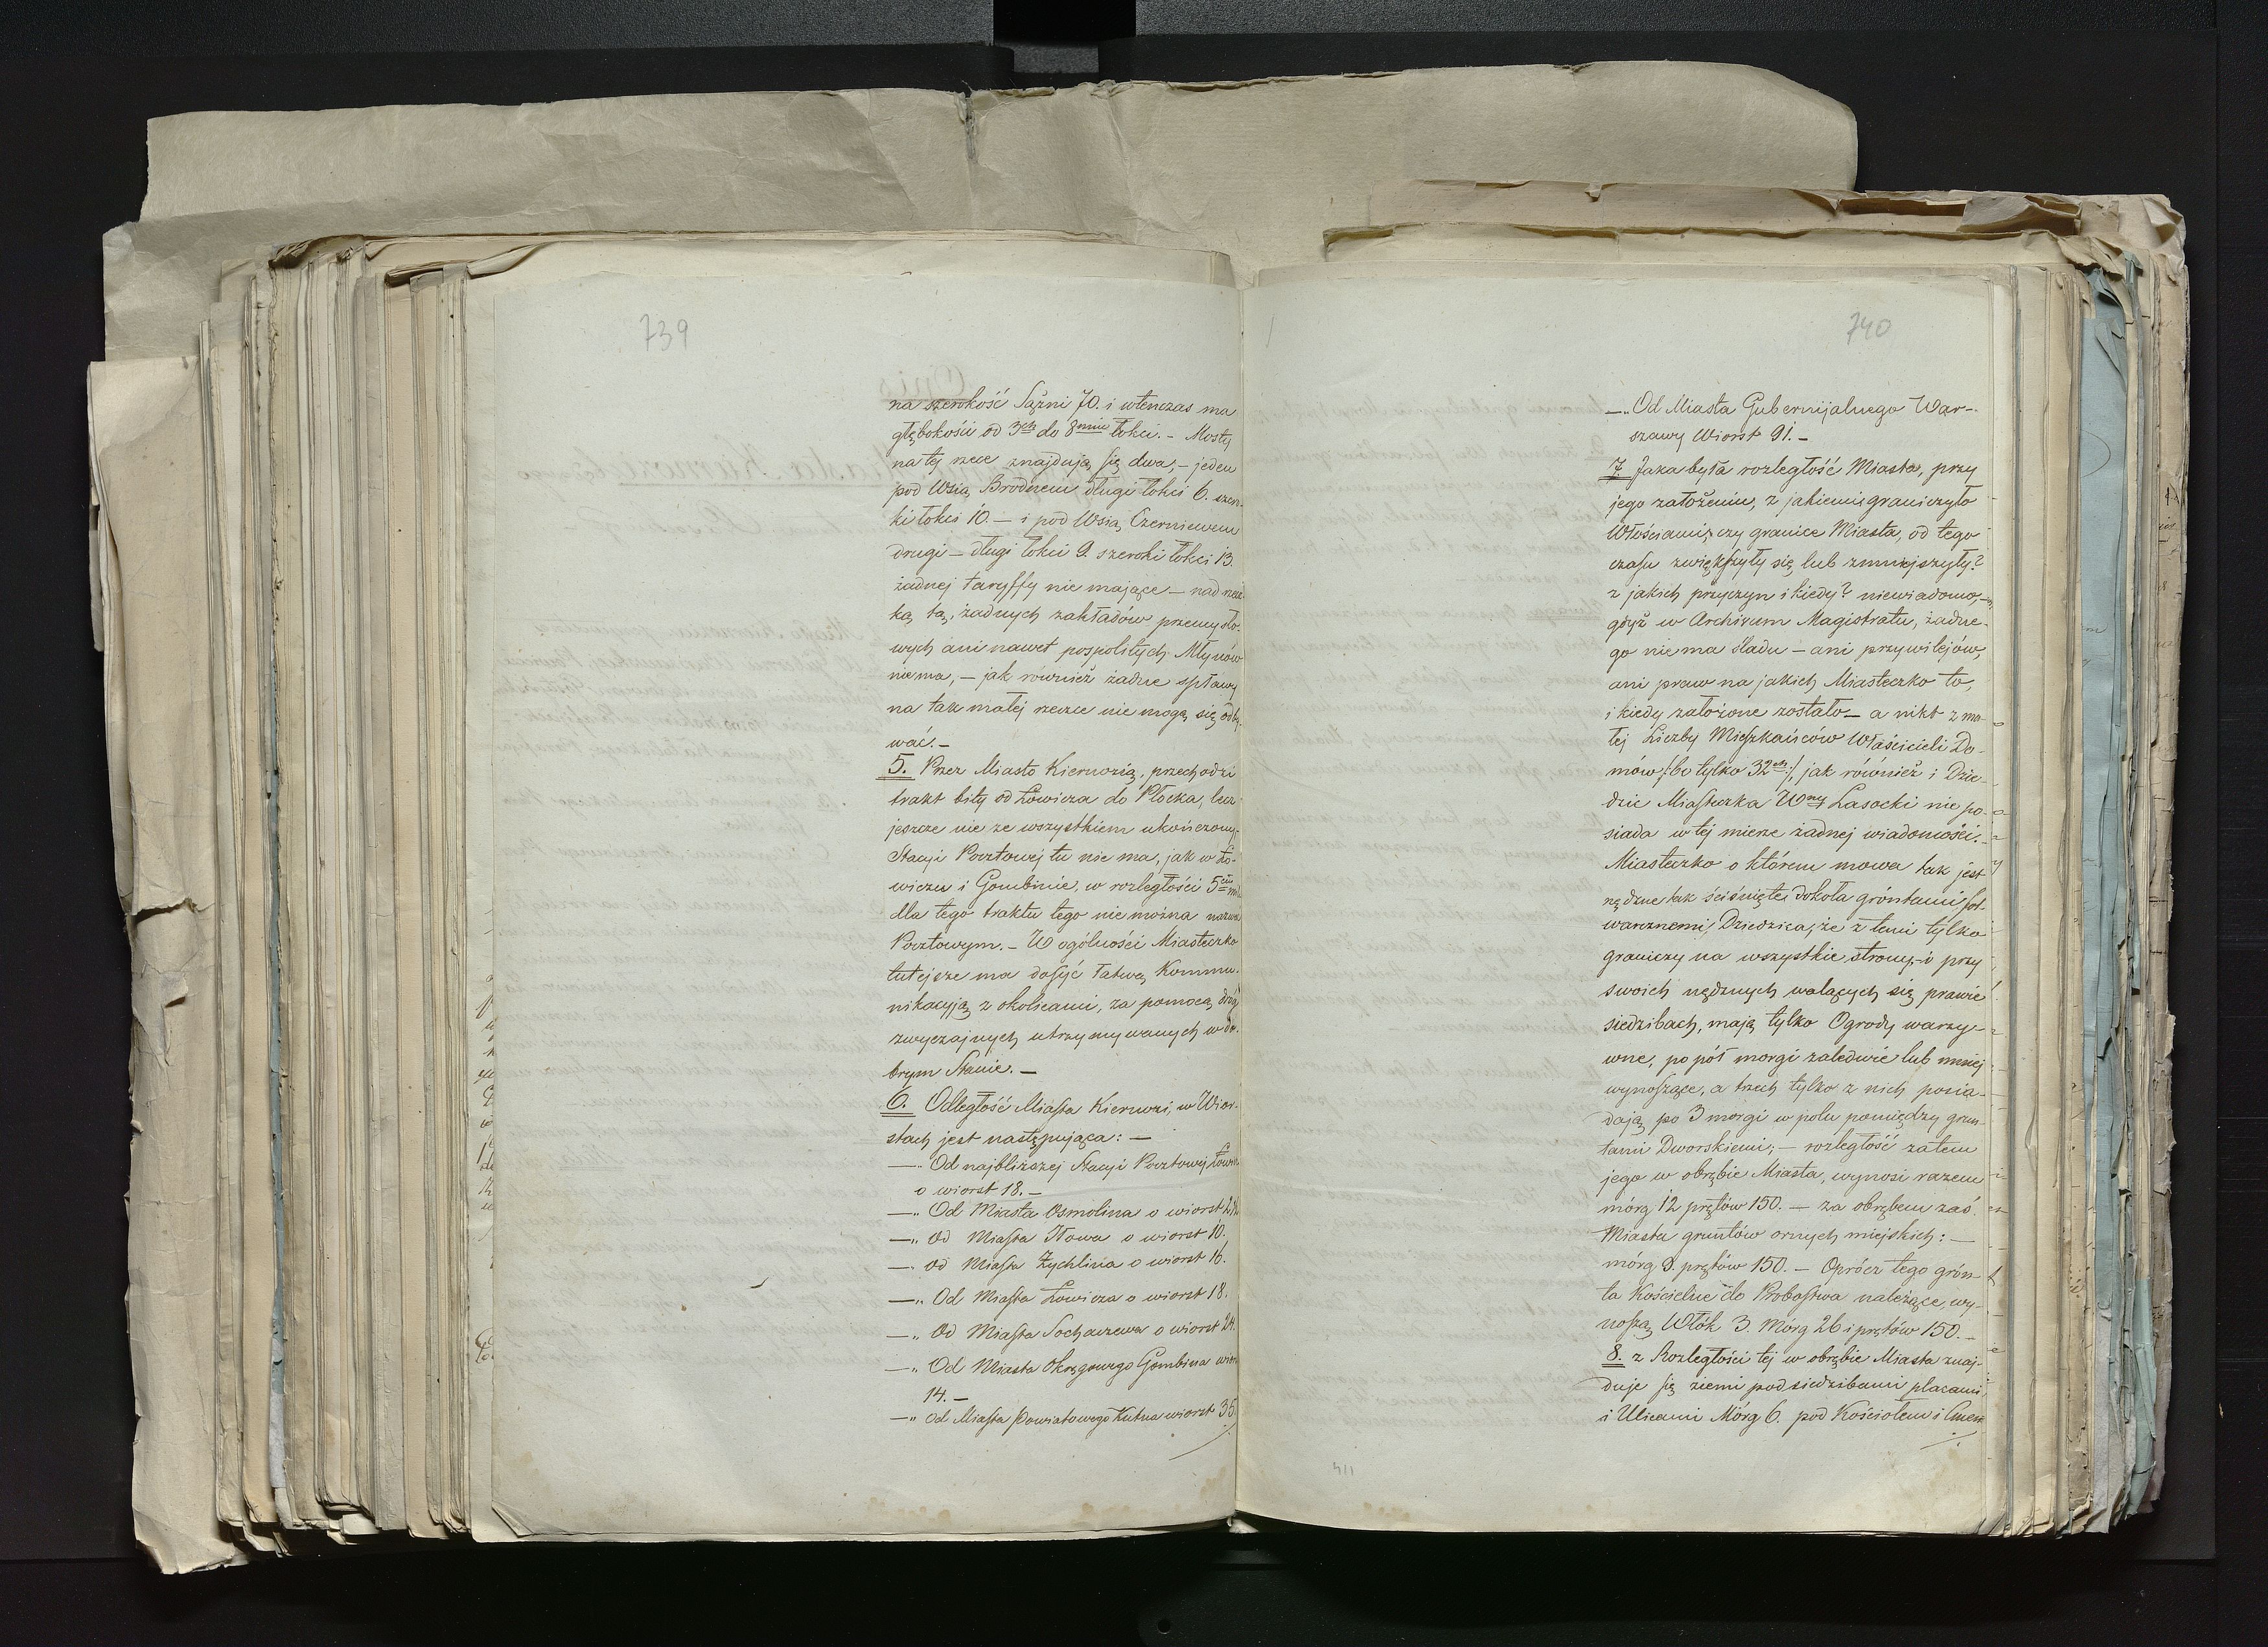 739
na szerokość Sążni 70. i wtenczas ma
głębokości od 3ch do 8miu łokci. - Mosty
na tej rzece znajdują się dwa, - jeden
pod Wsią Brodnem długi łokci 6. szero-
ki łokci 10. — i pod Wsią Czerniewem
drugi — długi łokci 9. szeroki łokci 13.
żadnej taryffy nie mające — nad rzecz-
ką tą, żadnych zakładów przemysło-
wych ani nawet pospolitych Młynów
niema, — jak również żadne spławy
na tak małej rzeczce nie mogą się odby-
wać. —
5. Przez Miasto Kiernozią, przechodzi
trakt bity od Łowicza do Płocka, lecz
jeszcze nie ze wszystkiem ukończony.
Stacyi Pocztowej tu nie ma, jak w Ło-
wiczu i Gombinie, w rozległości 5ciu mil
dla tego traktu tego nie można nazwać
Pocztowym. - W ogólności Miasteczko
tutejsze ma dosyć łatwą Kommu-
nikacyją z okolicami, za pomocą dróg
zwyczajnych utrzymywanych w do-
brym Stanie. —
6. Odległość Miasta Kiernozi, w Wior-
stach jest następująca: —
—„ Od najbliższej Stacyi Pocztowej Łowicz
o wiorst 18. —
—„ Od Miasta Osmolina o wiorst
—„ Od Miasta Iłowa o wiorst 10.
—„ Od Miasta Żychlina o wiorst 16.
—„ Od Miasta Łowicza o wiorst 18.
—„ Od Miasta Sochaczewa o wiorst 24.
—„ Od Miasta Okręgowego Gombina wiorst
14. —
—„ Od Miasta Powiatowego Kutna wiorst 35.
740
—„ Od Miasta Gubernijalnego War-
szawy Wiorst 91. —
7. Jaka była rozległość Miasta, przy
jego założeniu, z jakiemi graniczyło
Włościami; czy granice Miasta, od tego
czasu zwiększyły się lub zmniejszyły?
z jakich przyczyn i kiedy? niewiadomo, —
gdyż w Archivum Magistratu, żadne-
go nie ma śladu — ani przywilejów,
ani praw na jakich Miasteczko to,
i kiedy założone zostało — a nikt z ma-
łej Liczby Mieszkańców Właścicieli Do-
mów /: bo tylko 32ch :/, jak również i Dzie-
dzic Miasteczka Wny Lasocki nie po-
siada w tej mierze żadnej wiadomości. -
Miasteczko o którem mowa tak jest
nędzne tak ściśnięte dokoła gróntami fol-
warcznemi Dziedzica, że z temi tylko
graniczy na wszystkie strony, i przy
swoich nędznych walących się prawie
siedzibach, mają tylko Ogrody warzy-
wne, po pół morgi zaledwie lub mniej
wynoszące, a trzech tylko z nich posia-
dają po 3 morgi w polu pomiędzy grun-
tami Dworskiemi; — rozległość zatem
jego w obrębie Miasta, wynosi razem
mórg 12 prętów 150. — za obrębem zaś
Miasta gruntów ornych miejskich: —
mórg 9. prętów 150. — Oprócz tego grón-
ta Kościelne do Probostwa należące, wy-
noszą Włók 3. Mórg 26 i prętów 150. —
8. z Rozległości tej w obrębie Miasta znaj-
duje się ziemi pod siedzibami placami
i Ulicami Mórg 6. pod Kościołem i Cmen